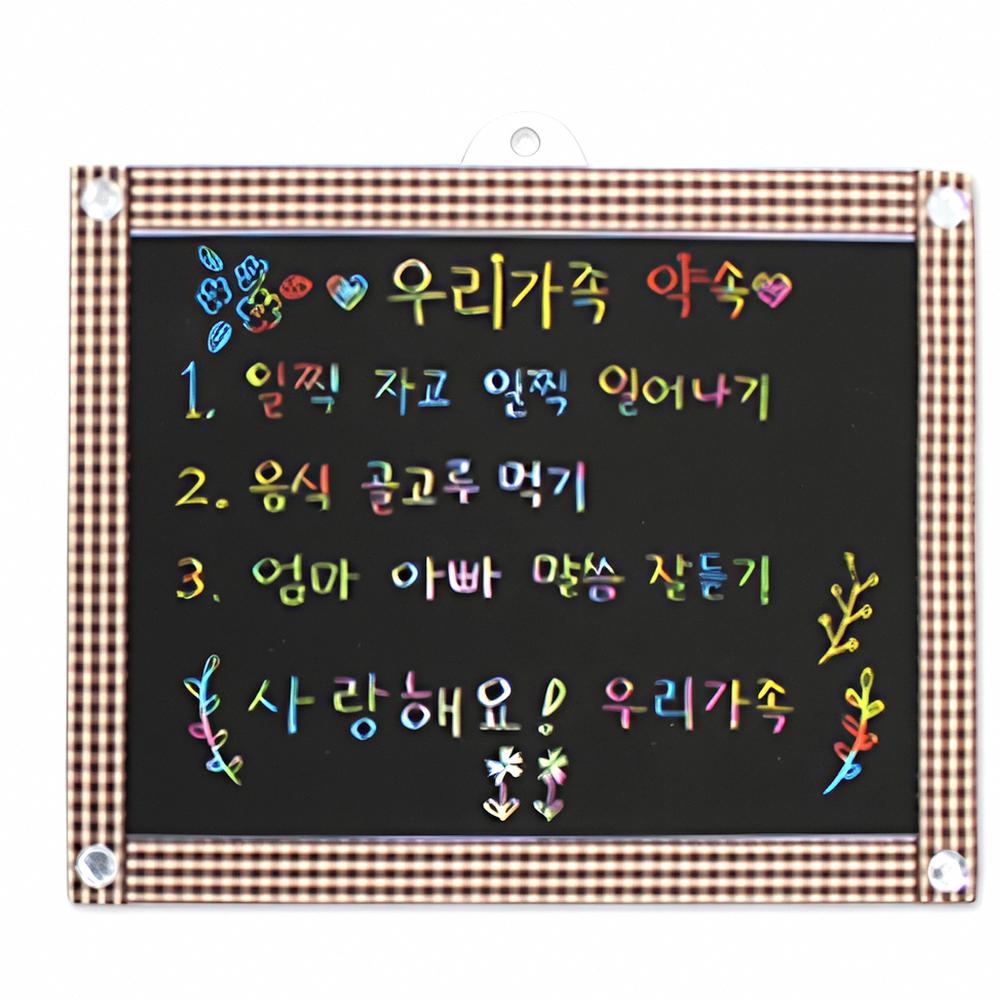 우리가족 약속
1. 일찍 자고 일찍 일어나기
2. 음식 골고루 먹기
3. 엄마 아빠 말씀 잘듣기
사랑해요! 우리가족